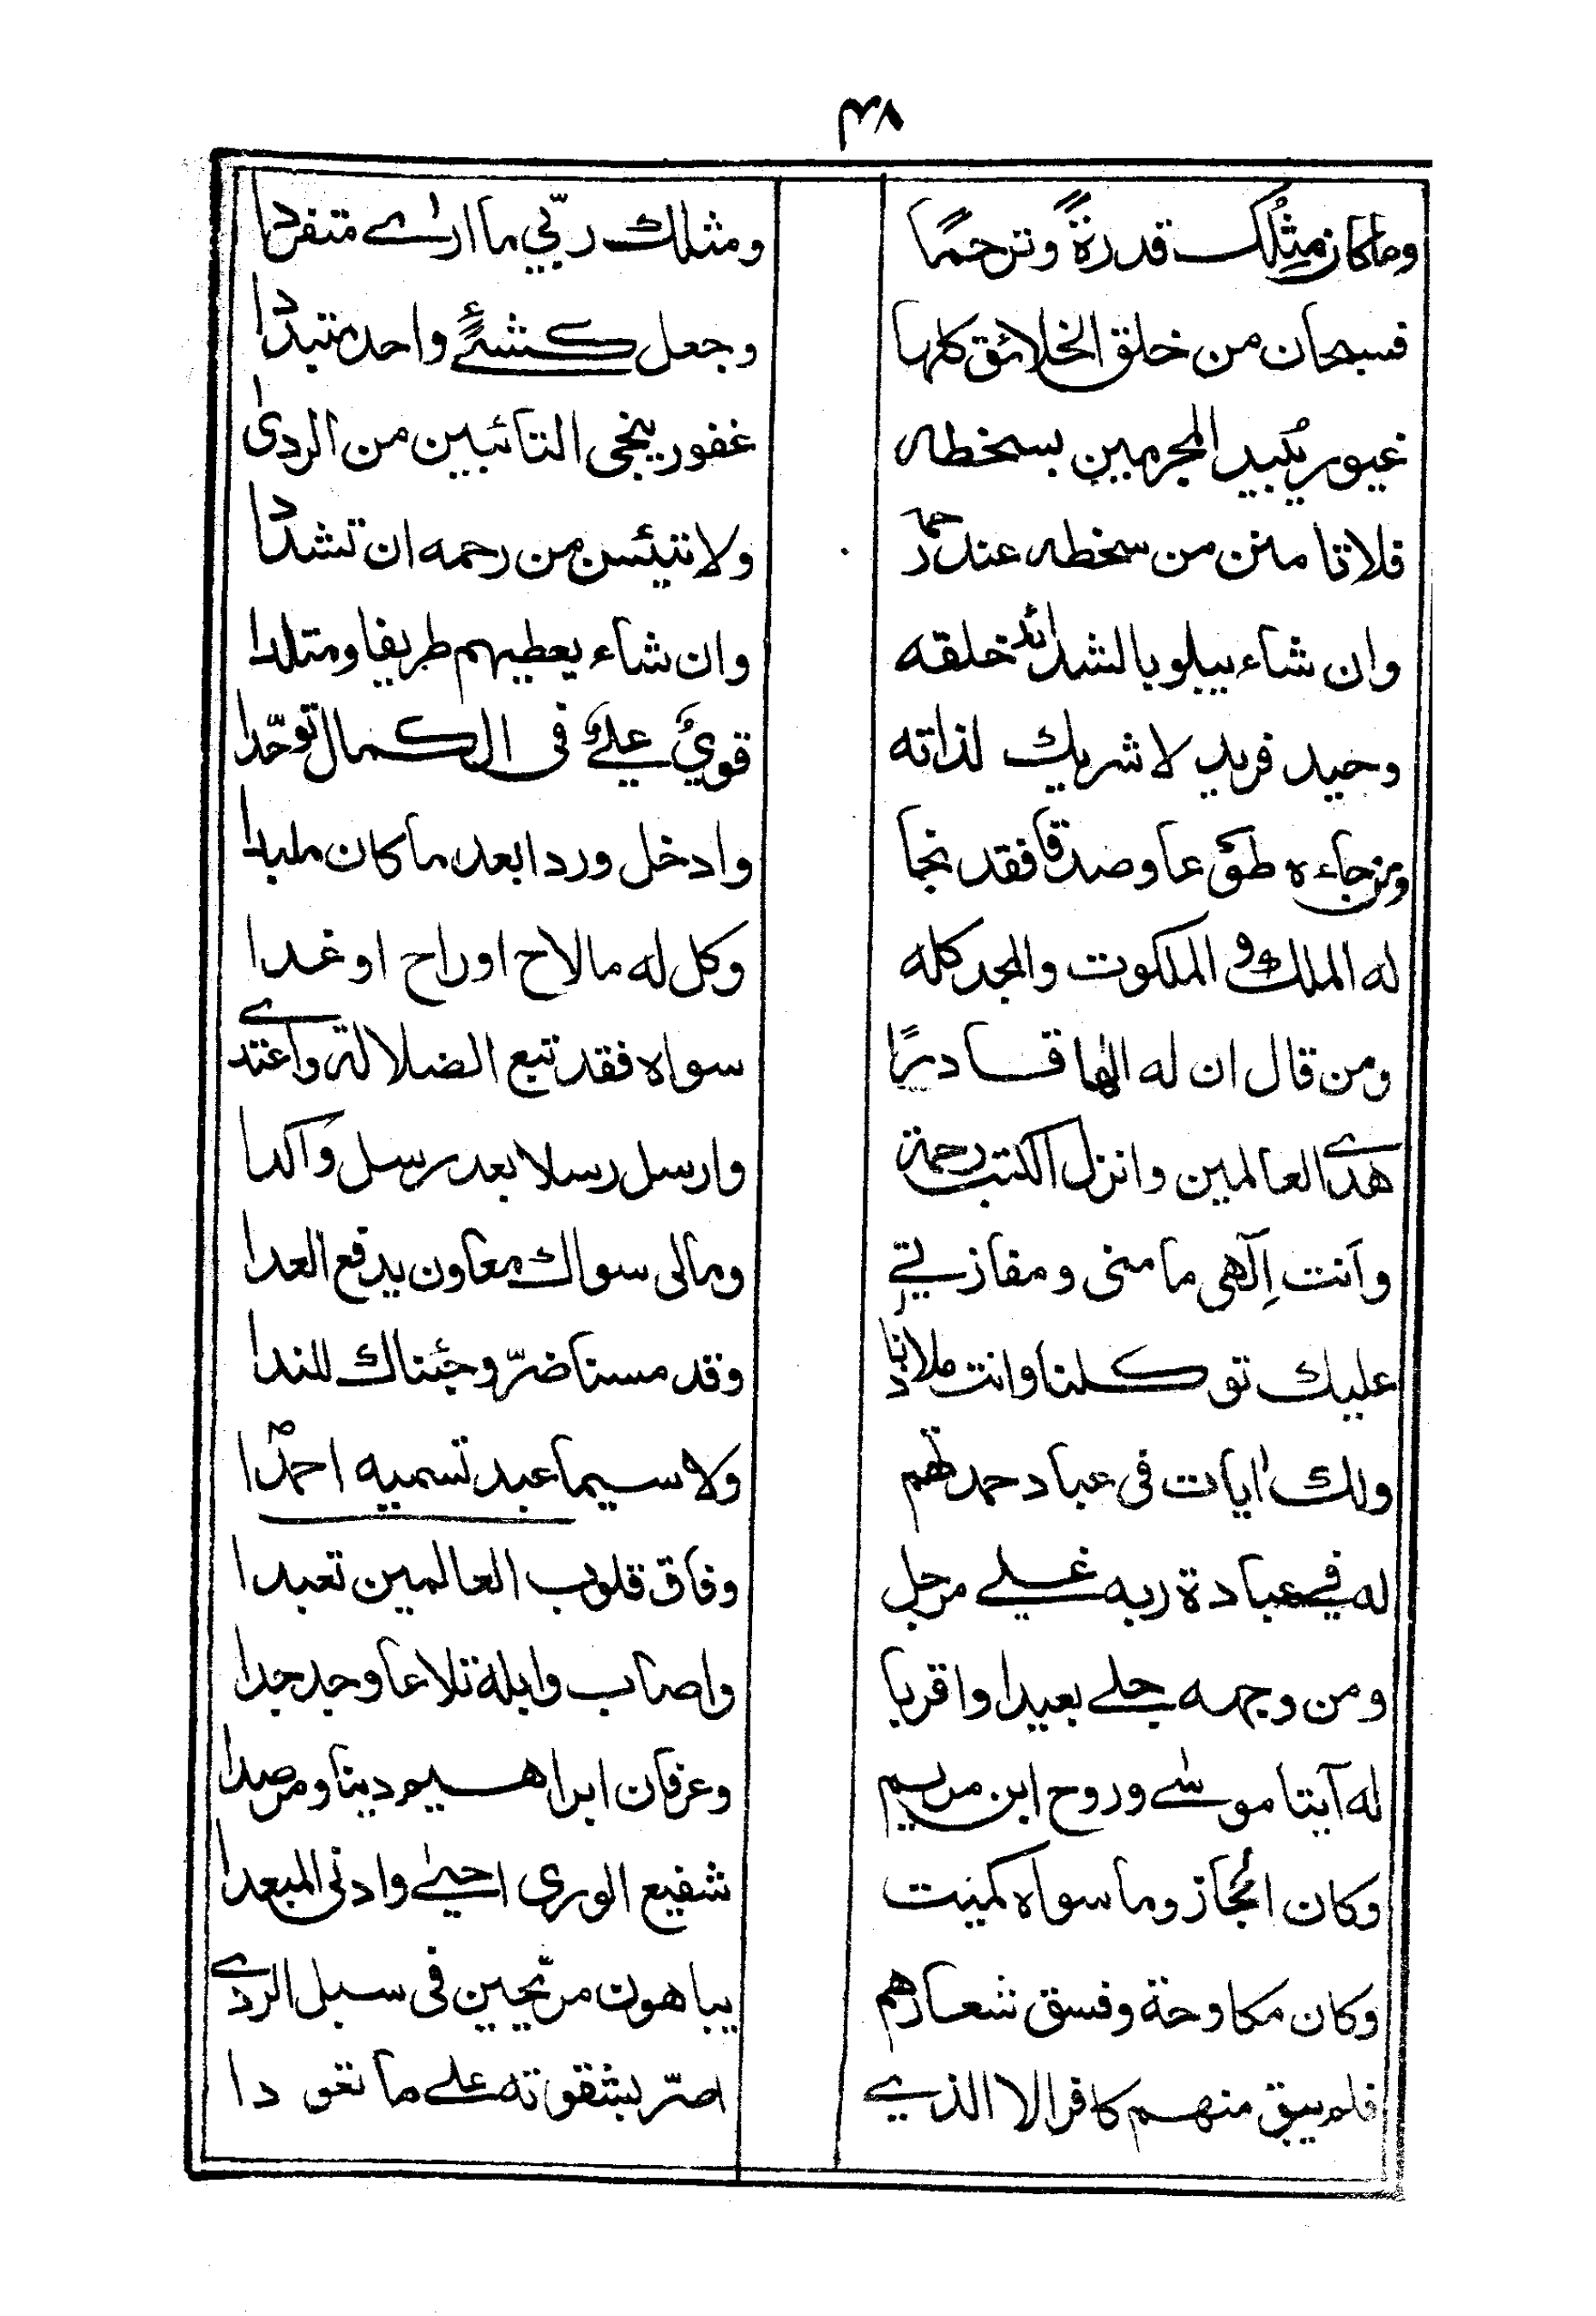 ٣٨
وما كان مثلك قدرةً وترحمًا ومثلك ربّي ما ارٰى متفردا
فسبحان من خلق الخلائق كلها وجعل كشئٍ واحد متبددا
غيور يُبيد المجرمين بسخطه غفور ينجى التائبين من الردىٰ
فلا تامنن من سخطه عند رحمه ولا تيئسن من رحمه ان تشددا
وان شاء يبلو بالشدائد خلقه وان شاء يعطيهم طريفا ومتلدا
وحيد فريد لا شريك لذاته قويٌ عليٌ فى الكمال توحّدا
ومن جاءه طوعا وصدقا فقد نجا وادخل وردا بعد ما كان ملبدا
له الملك والملكوت والمجد كله وكل له ما لاح او راح او غدا
ومن قال ان له الٰها قادرًا سواه فقد تبع الضلالة واعتدى
هدى العالمين وانزل الكتب رحمة وارسل رسلا بعد رسل وَاكدا
وَانت اِلٓهى مامنى ومفازتي ومالى سواك معاون يدفع العدا
عليك توكلنا وانت ملاذنا وقد مسنا ضرّ وجئناك للندا
ولك اٰيات فى عباد حمدتهم ولا سيما عبد تسميه احمدؐا
له في عبادة ربه غلي مرجل وفاق قلوب العالمين تعبدا
ومن وجهه جلى بعيدا واقربا واصاب وابلة تلاعا وجدجدا
له آيتا موسٰى وروح ابن مريم وعرفان ابراهيم دينا ومرصدا
وكان الحجاز وما سواه كميت شفيع الورى احيىٰ وادنى المبعدا
وكان مكاوحة وفسق شعارهم يباهون مرّيحين فى سبل الردى
فلم يبق منهم كافر الا الذي اصرّ بشقوته على ما تعودا